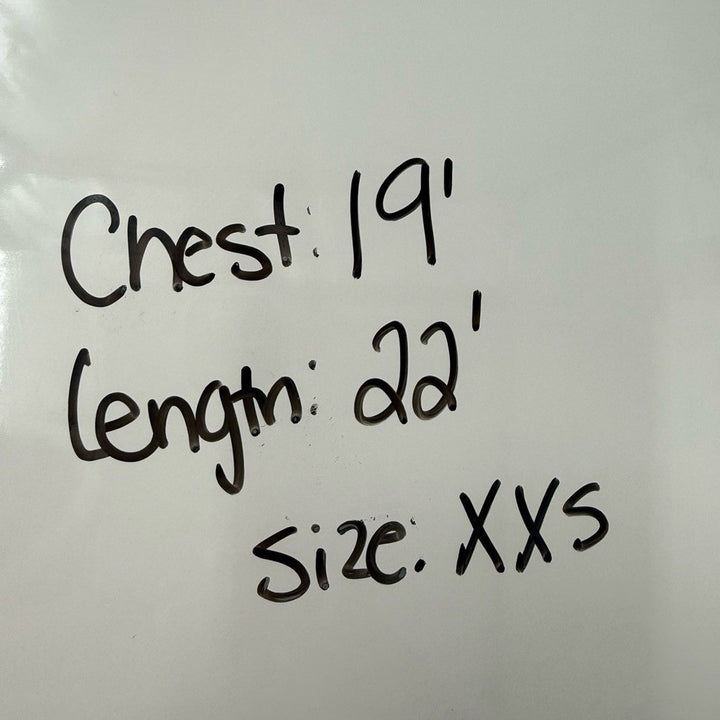 Chest: 19'
Length: 22'
Size: XXS